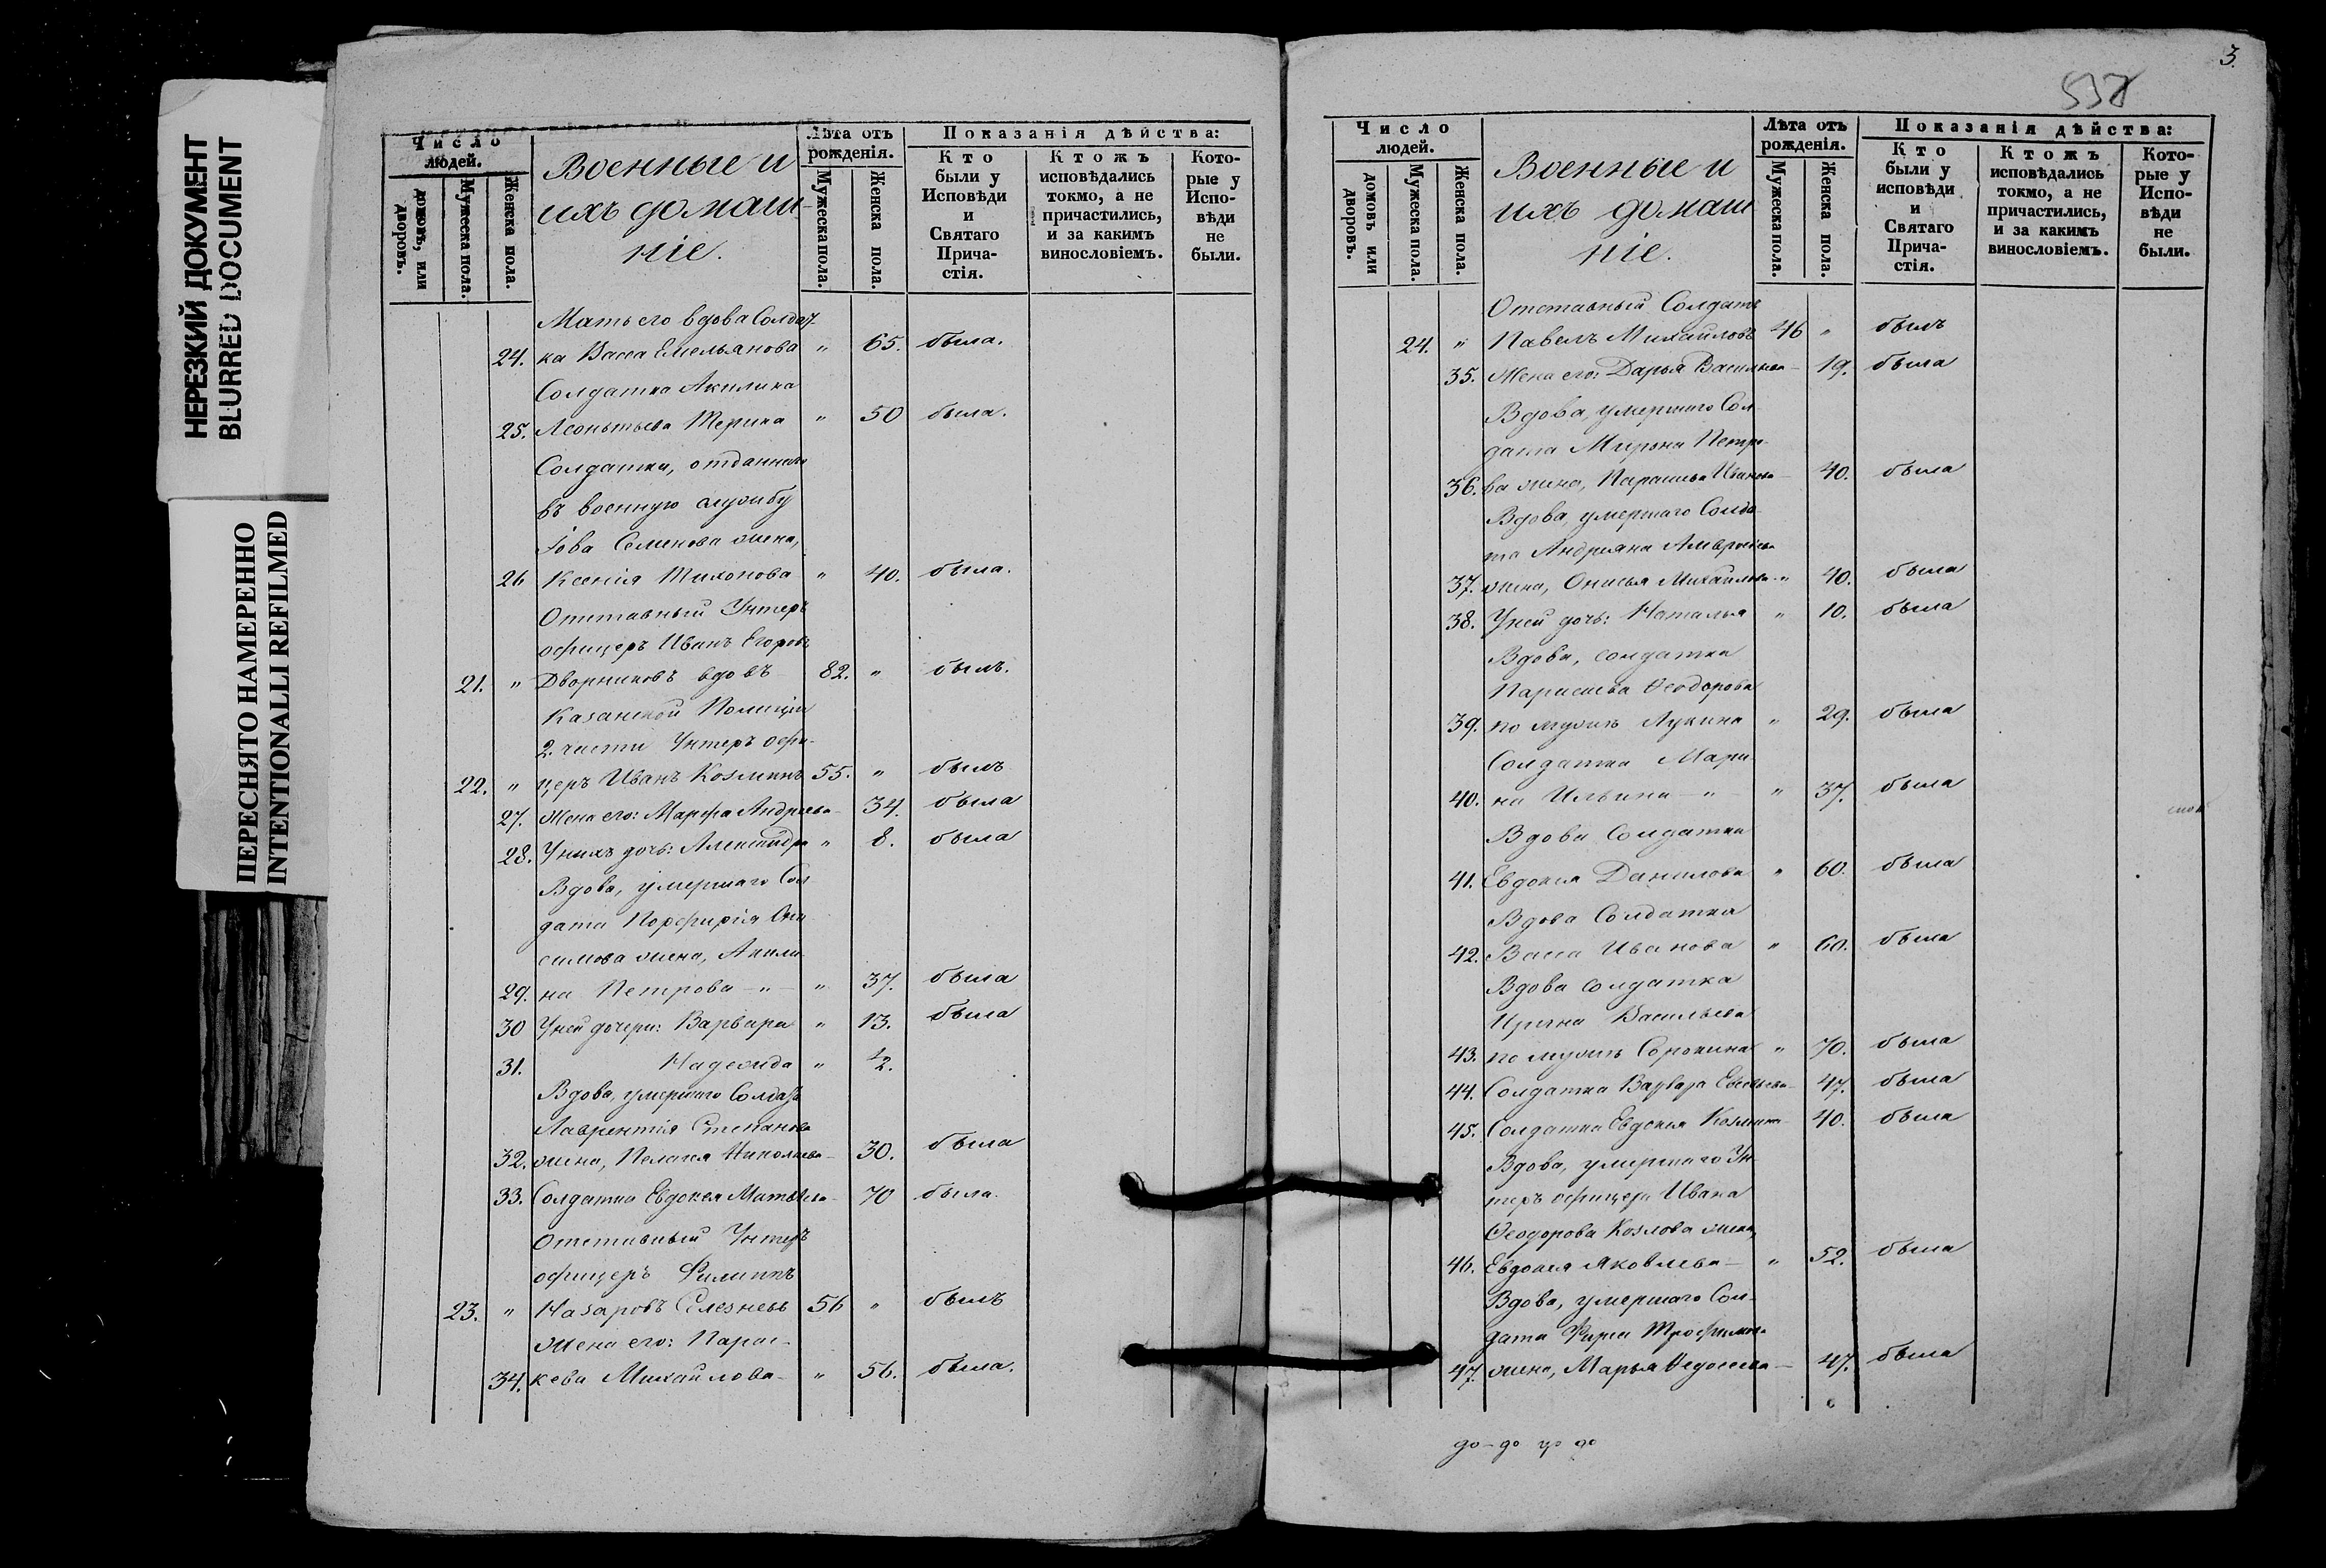 НЕРЕЗКИЙ ДОКУМЕНТ
BLURRED DOCUMENT
ПЕРЕСНЯТО НАМЕРЕННО
INTENTIONALLI REFILMED
Число людей.
домовъ, или дворовъ.
Мужеска пола.
Женска пола.
Военные и
ихъ домаш-
ніе.
Лѣта отъ рожденія.
Мужеска пола.
Женска пола.
Показанія дѣйства:
Кто были у Исповѣди и Святаго Прича-стія.
Ктожъ исповѣдались токмо, а не причастились, и за какимъ винословіемъ.
Кото-рые у Испо-вѣди не были.
Мать его вдова Солдат-
24. ка Васса Емельянова " 65. была.
Солдатка Акилина
25. Леонтьева Терина " 50 была.
Солдатка, отданнаго
въ военную службу
Іова Семенова жена,
26 Ксенія Тихонова " 40. была.
Отставный Унтеръ
офицеръ Иванъ Егоровъ
21. " Дворниковъ вдовъ 82. " былъ.
Казанской Полиціи
2. части Унтеръ офи-
22. " церъ Иванъ Козминъ 55. " былъ
27. Жена его: Марфа Андреева - 34. была
28. У нихъ дочь: Александра " 8. была
Вдова, умершаго Сол
дата Порфирія Они
симова жена, Акили
29. на Петрова - " - " 37. была
30 У ней дочери: Варвара " 13. была
31. Надежда " 2.
Вдова, умершаго Солдата
Лаврентія Степанова
32. жена, Пелагея Николаева - 30. была
33. Солдатка Евдокея Матвеева - 70 была.
Отставный Унтеръ
офицеръ Филиппъ
23. " Назаровъ Селезневъ 56 " былъ
Жена его: Парас-
34. кева Михайлова - " 56. была.
3.
538
Число людей.
домовъ или дворовъ.
Мужеска пола.
Женска пола.
Военные и
ихъ домаш
ніе.
Лѣта отъ рожденія.
Мужеска пола.
Женска пола.
Показанія дѣйства:
Кто были у исповѣди и Святаго Прича-стія.
Ктожъ исповѣдались токмо, а не причастились, и за какимъ винословіемъ.
Кото-рые у Испо-вѣди не были.
Отставный Солдатъ
24. " Павелъ Михайловъ 46 " былъ
35. Жена его: Дарья Васильева - 19. была
Вдова, умершаго Сол-
дата Мирона Петро-
36. ва жена, Парасева Иванова - 40. была
Вдова, умершаго Солда-
та Андреяна Амвросіева
37. жена, Онисья Михайлова - " 40. была
38. У ней дочь: Наталья " 10. была
Вдова, солдатка
Парасева Ѳеодорова
39. по мужѣ Лукина " 29. была
Солдатка Мари-
40. на Ильина - " - " 37. была
Вдова Солдатка
41. Евдокея Данилова " 60. была
Вдова Солдатка
42. Васса Иванова " 60. была
Вдова солдатка
Ирина Васильева
43. по мужѣ Сорокина " 70. была
44. Солдатка Варвара Евсевьева - 47. была
45. Солдатка Евдокея Козмина - 40. была
Вдова, умершаго Ун-
теръ офицера Ивана
Ѳеодорова Козлова жена,
46. Евдокея Яковлева - " 52. была
Вдова, умершаго Сол-
дата Фирса Трофимова
47. жена, Марья Ѳедосеева - 47. была